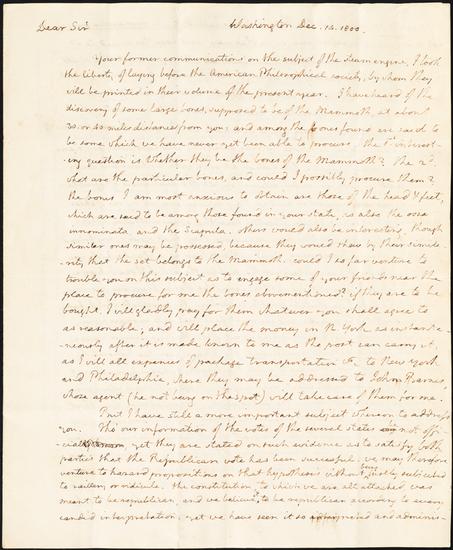 Dear Sir Washington Dec. 14. 1800.
Your former communications on the subject of the steam engine, I took
the liberty of laying before the American Philosophical society, by whom they
will be printed in their volume of the present year. I have heard of the
discovery of some large bones, supposed to be of the Mammoth, at about
30. or 40. miles distance from you; and among the bones found are said to
be some which we have never yet been able to procure. the 1st interest-
-ing question is Whether they be the bones of the Mammoth? the 2d
what are the particular bones, and could I possibly procure them?
the bones I am most anxious to obtain are those of the head & feet,
which are said to be among those found in your state, as also the ossa
innominata, and the Scapula. others would also be interesting, though
similar ones may be possessed, because they would shew by their simila-
rity that the set belongs to the Mammoth. could I so far venture to
trouble you on this subject as to engage some of your friends near the
place to procure for me the bones abovementioned? if they are to be
bought, I will gladly pay for them whatever you shall agree to
as reasonable; and will place the money in N. York as instanta-
neously after it is made known to me as the post can carry it,
as I will all expences of package transportation &c to New York
and Philadelphia, where they may be addressed to John Barnes,
whose agent (he not being on the spot) will take care of them for me.
But I have still a more important subject whereon to address
you. Tho' our information of the votes of the several states not offi-
cial yet they are stated on such evidence as to satisfy both
parties that the Republican vote has been successful. we may therefore
venture to hazard propositions on that hypothesis without being justly subjected
to raillery or ridicule. the constitution, to which we are all attached was
meant to be republican, and we believe to be republican according to every
candid interpretation. yet we have seen it so interpreted and adminis-